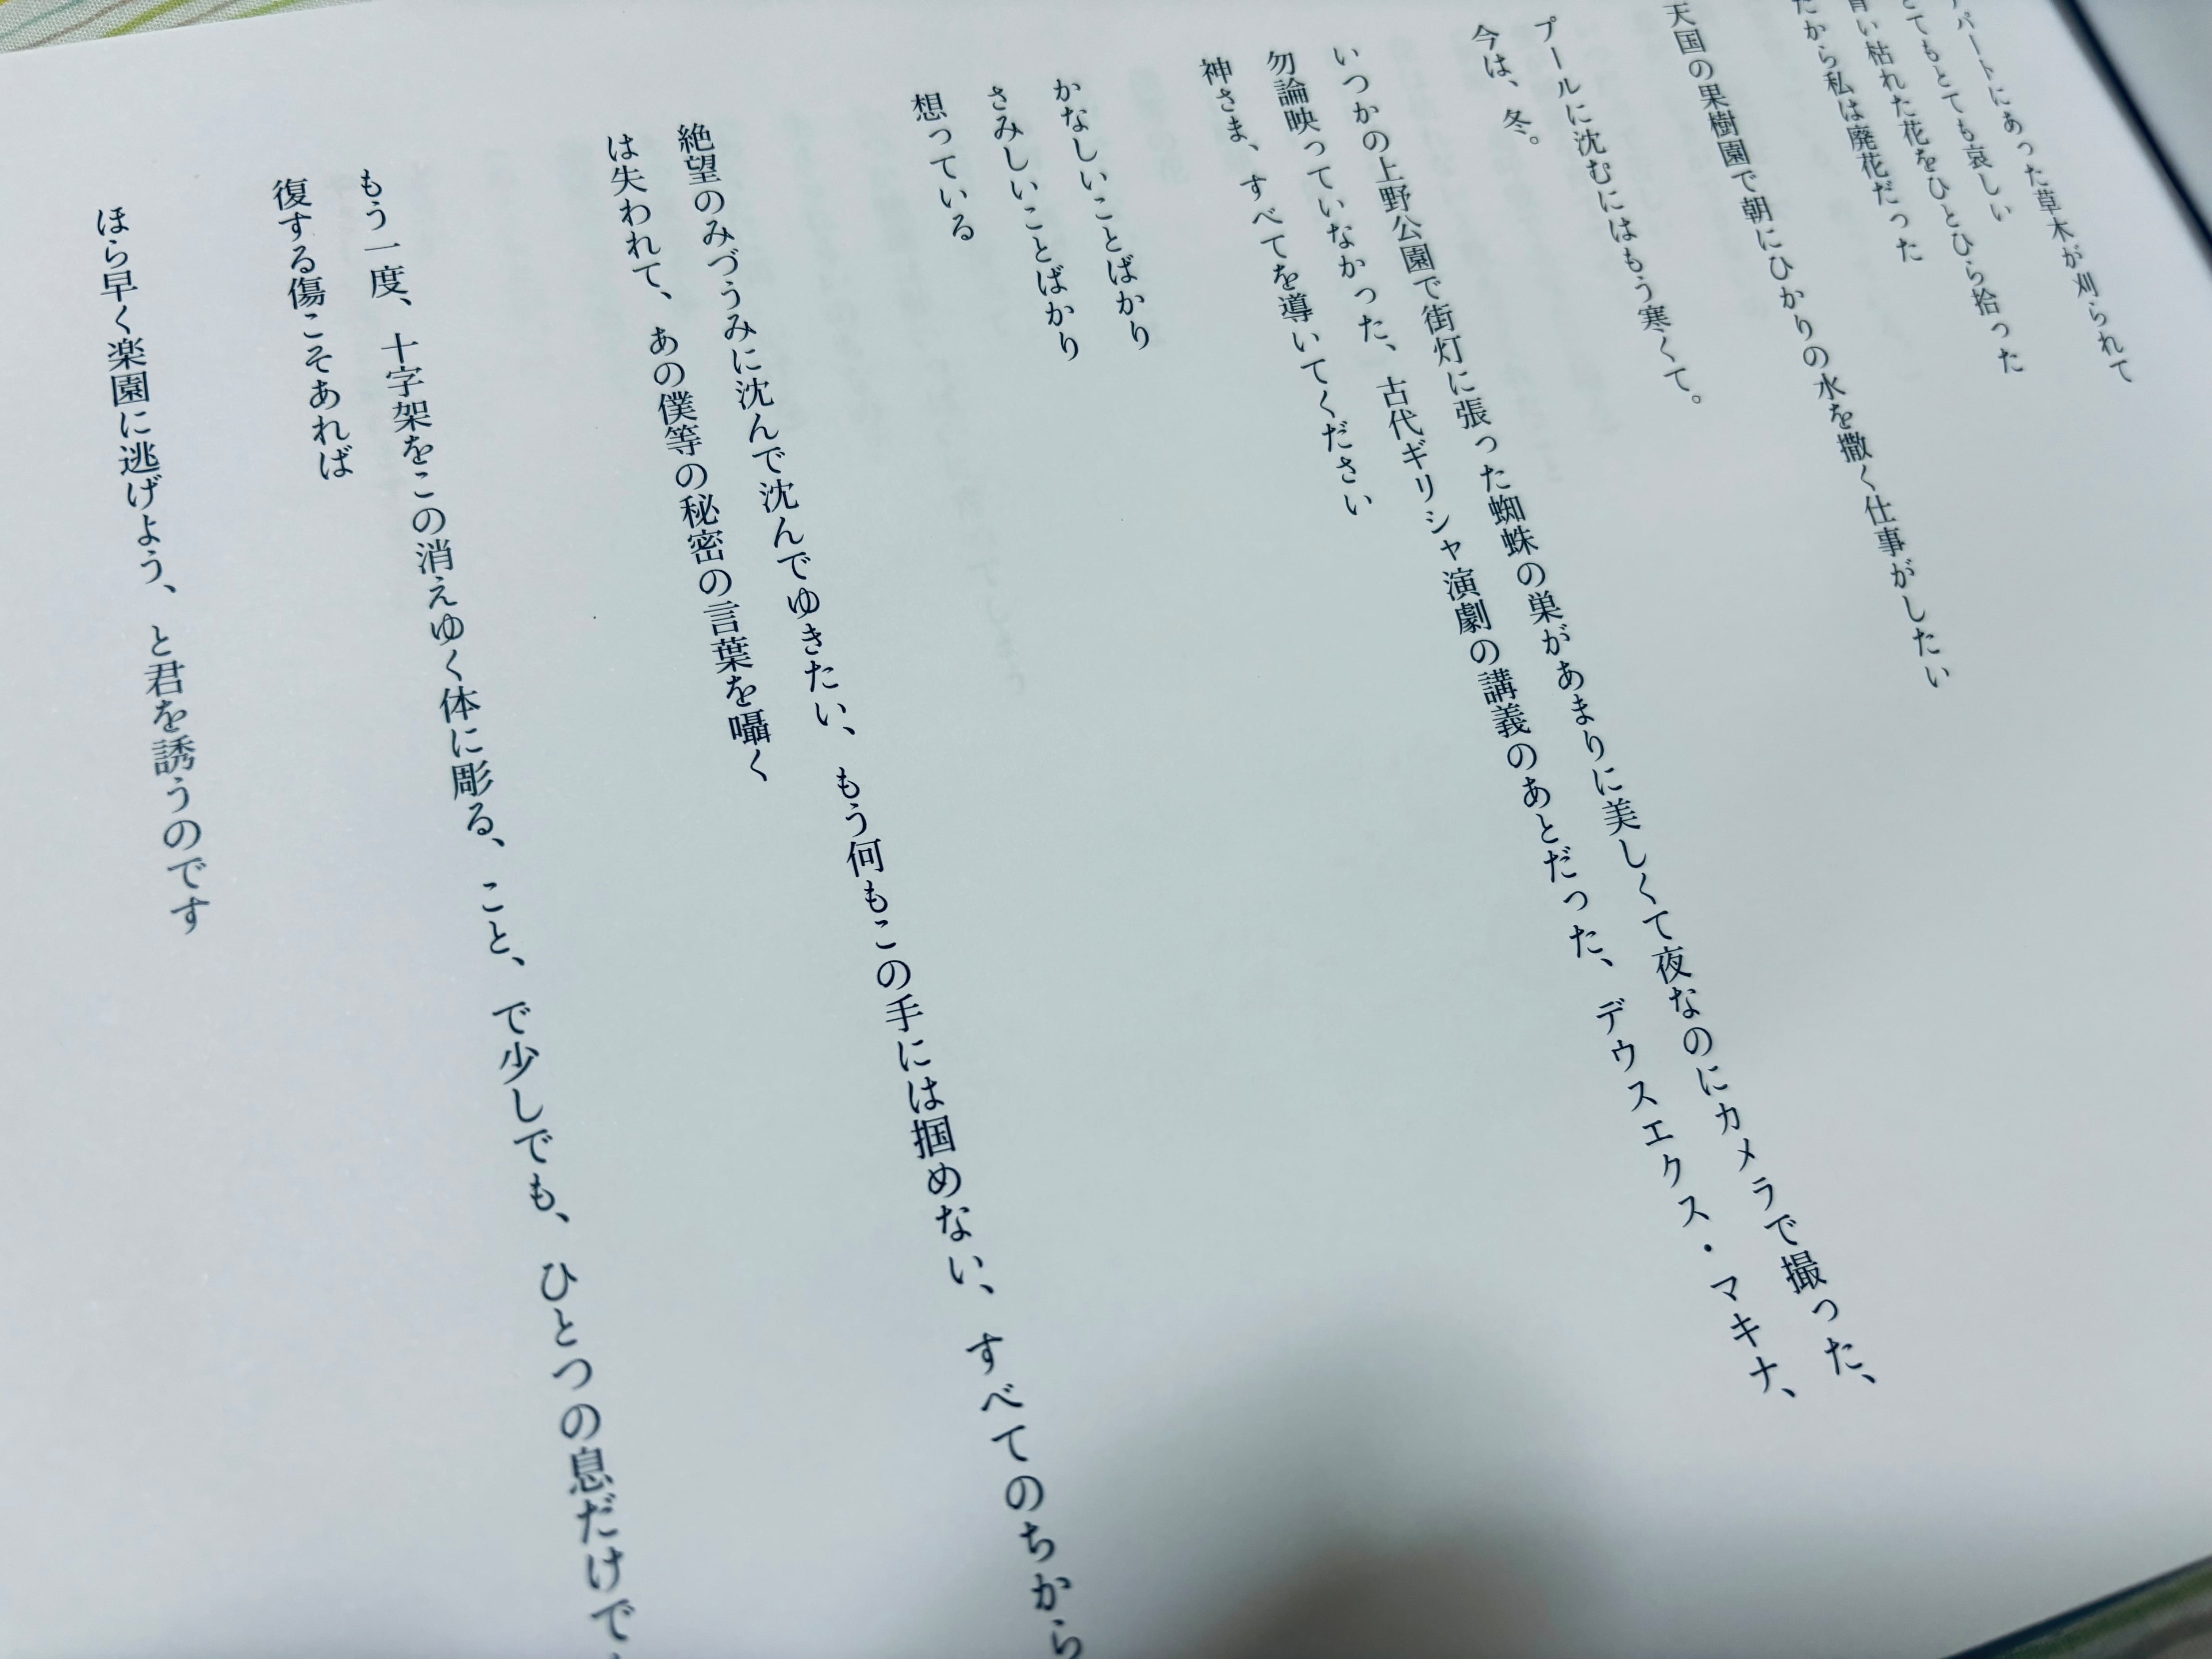 パートにあった草木が刈られて
とてもとても哀しい
い枯れた花をひとひら拾った
だから私は廃花だった
天国の果樹園で朝にひかりの水を撒く仕事がしたい
プールに沈むにはもう寒くて。
今は、冬。
いつかの上野公園で街灯に張った蜘蛛の巣があまりに美しくて夜なのにカメラで撮った、
勿論映っていなかった、古代ギリシャ演劇の講義のあとだった、デウスエクス・マキナ、
神さま、すべてを導いてください
かなしいことばかり
さみしいことばかり
想っている
絶望のみづうみに沈んで沈んでゆきたい、もう何もこの手には掴めない、すべてのちから
は失われて、あの僕等の秘密の言葉を囁く
もう一度、十字架をこの消えゆく体に彫る、こと、で少しでも、ひとつの息だけで
復する傷こそあれば
ほら早く楽園に逃げよう、と君を誘うのです